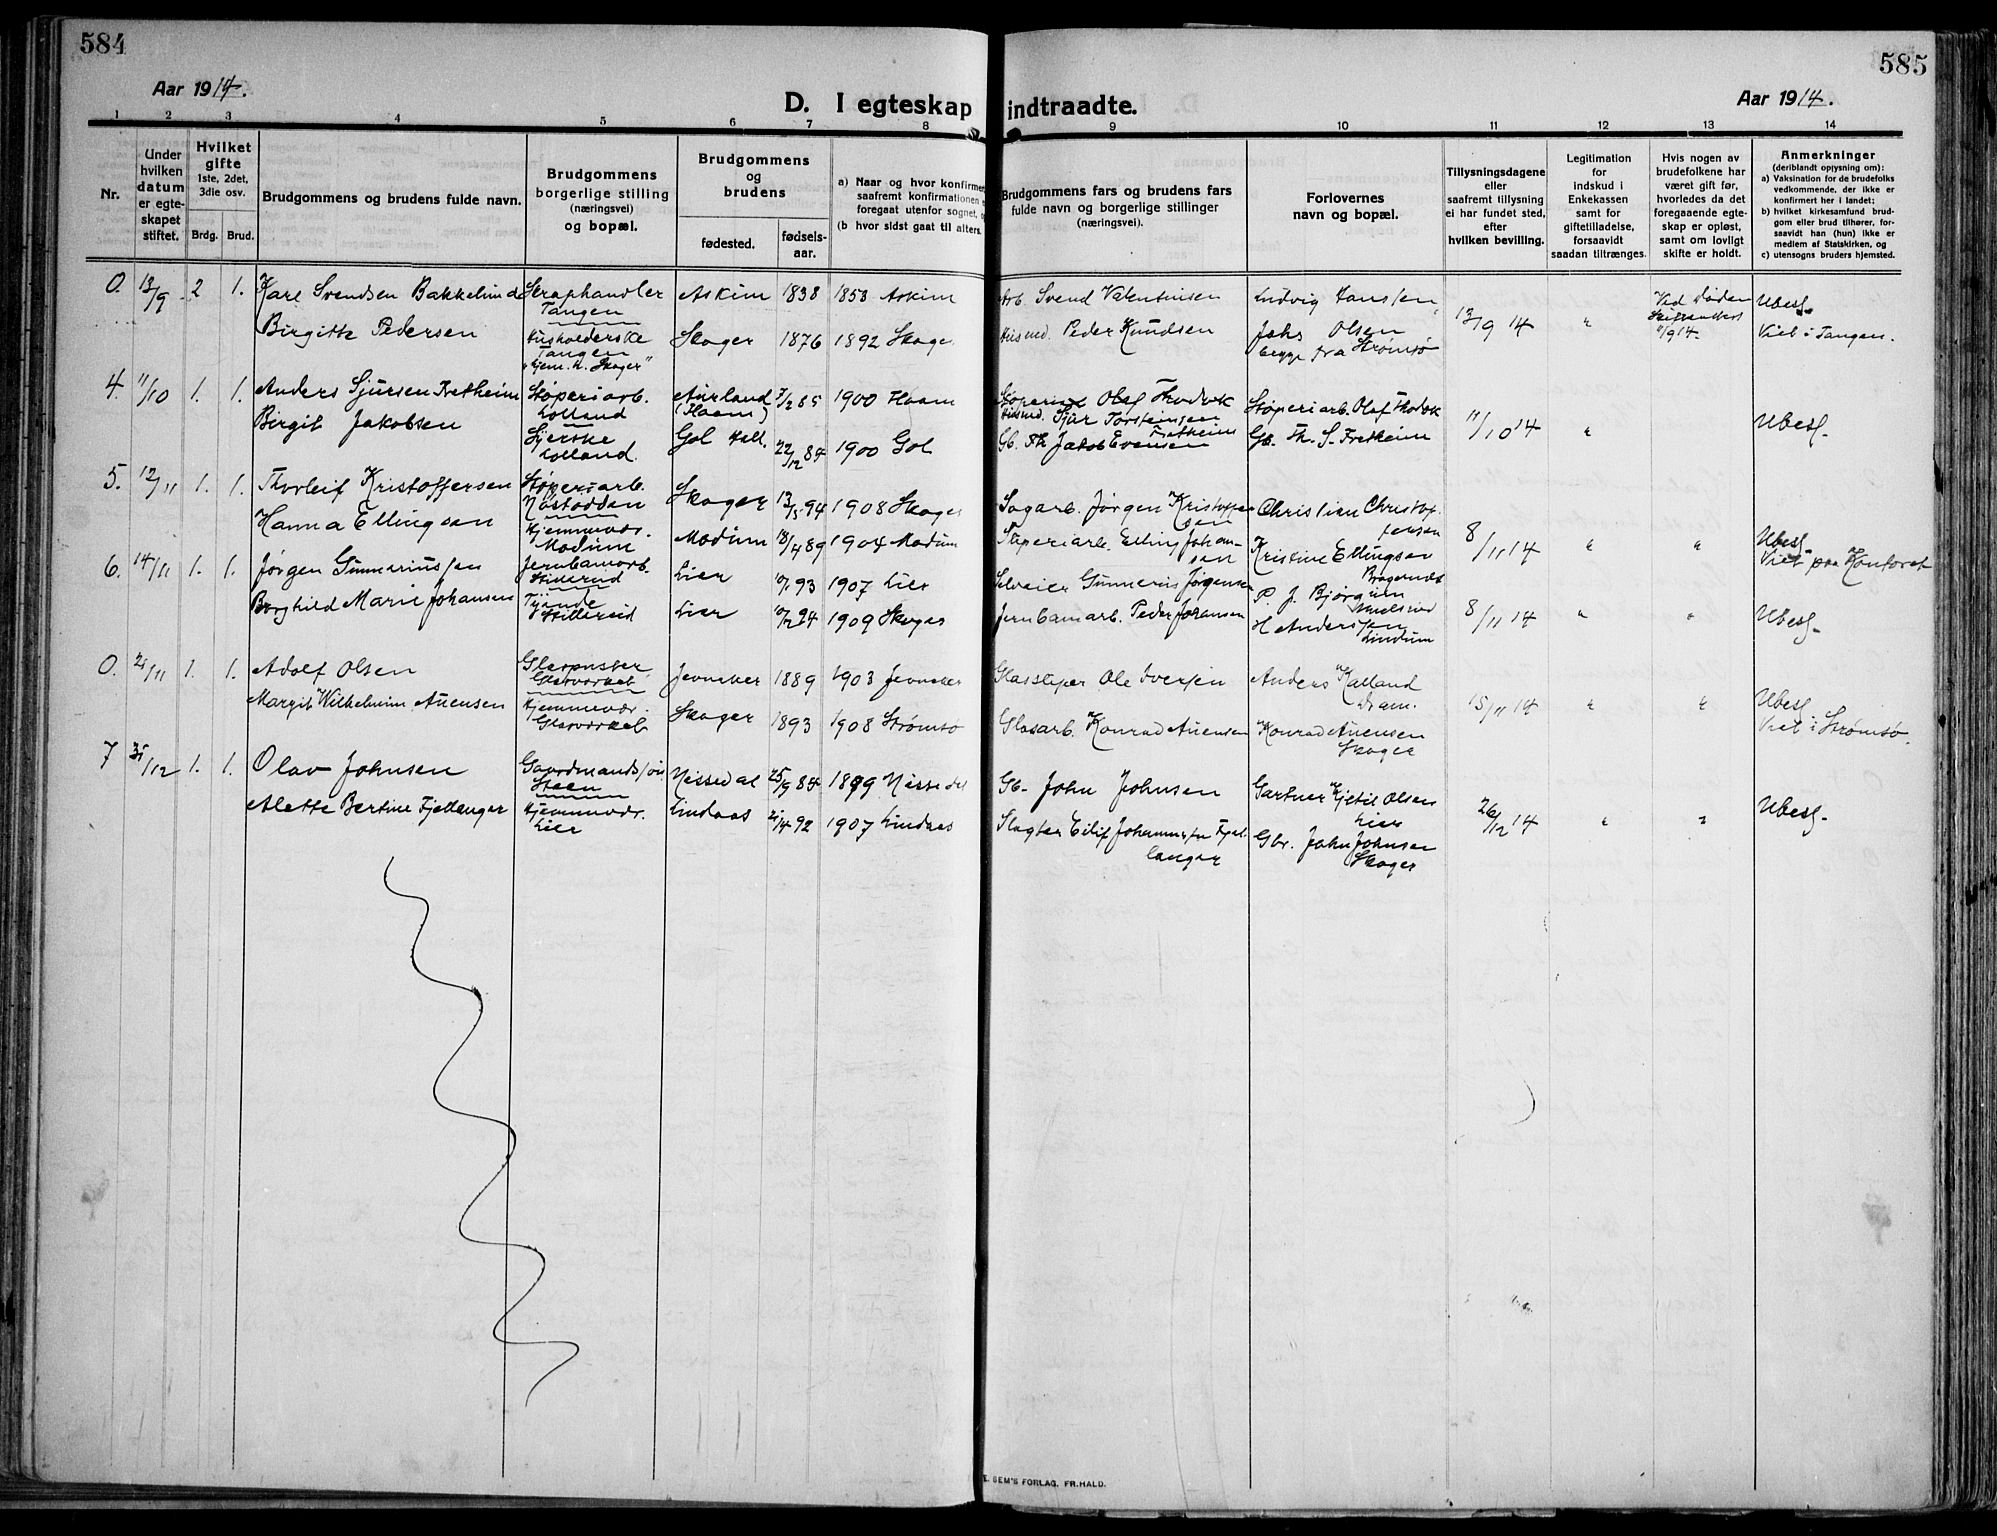 584
585
Aar 1914.
D. I egteskap indtraadte.
Aar 1914.
1 2 3 4 5 6 7 8 9 10 11 12 13 14
Nr.
Under hvilken datum er egteskapet stiftet.
Hvilket gifte 1ste, 2det, 3die osv.
Brdg. Brud.
Brudgommens og brudens fulde navn.
Brudgommens borgerlige stilling (næringsvei) og bopæl.
Brudgommens og brudens
fødested. fødselsaar.
a) Naar og hvor konfirmert
saafremt konfirmationen
foregaat utenfor sognet,
(b hvor sidst gaat til alters.
Brudgommens fars og brudens fars fulde navn og borgerlige stillinger (næringsvei).
Forlovernes navn og bopæl.
Tillysningsdagene eller saafremt tillysning ei har fundet sted, efter hvilken bevilling.
Legitimation for indskud i Enkekassen samt for giftetilladelse, forsaavidt saadan tiltrænges.
Hvis nogen av brudefolkene har været gift før, hvorledes da det foregaaende egteskap er opløst, samt om lovligt skifte er holdt.
Anmerkninger (deriblandt opjysning om):
a) Vaksination for de brudefolks vedkommende, der ikke er konfirmert her i landet;
b) hvilket kirkesamfund brudgom eller brud tilhører, forsaavidt han (hun) ikke er medlem af Statskirken, og
c) utensogns bruders hjemsted.
0. 13/9 2 1. Karl Svendsen Bakkelund Skraphandler Tangen Askim 1838 1853 Askim Arb. Svend Valentinsen Ludvig Hanssen 13/9 14 " Ved døden 11/9 14 Ubesl. Viet i Tangen.
Birgitte Pedersen Husholderske Tangen Skoger 1876 1892 Skoger Husmd. Peder Knudsen Jahs Olsen begge fra Strømsø
4. 11/10 1. 1. Anders Sjursen Fretheim Støperiarb. Lolland Aurland 7/2 85 1900 Husmd. Sjur Torsteinsen Fretheim Støperiarb. Olaf 11/10 14 " Ubesl.
Birgit Jakobsen Lolland. Gol Hall. 22/12 84 1900 Gol Gb. Jakob Evensen Gb. Th. S. Fretheim
5. 12/11 1. 1. Thorleif Kristoffersen Støperiarb. Nøstodden Skoger 13/5 94 1908 Skoger Sagarb. Jørgen Kristoffersen Christian Christoffersen 8/11 14 " " Ubesl. Viet paa Kontoret
Hanna Ellingsen Hjemmevær. Modum Modum 18/4 89 1904 Modum Støperiarb. Elling Johansen Kristine Ellingsen Bragernæs
6. 14/11 1. 1. Jørgen Gunneriussen Jernbanarb. Stillerud Lier 93 1907 Lier Selveier Gunnerius Jørgensen P. J. Bjørgum 8/11 14 " " Ubesl.
Borghild Marie Johansen Stillerud Lier 94 1909 Skoger Jernbanarb. Peder Johansen H. Anderssen Lindum
0. 21/11 1. 1. Adolf Olsen Glaspuster Glasværket Jevnaker 1889 1903 Jevnaker Glassliper Ole Iversen Anders Kalland Dram. 15/11 14 " " Ubesl. Viet i Strømsø.
Margit Wilhelmine Auensen Hjemmevær. Glasværket Skoger 1893 1908 Strømsø Glasarb. Konrad Auensen Konrad Auensen Skoger
7 31/12 1. 1. Olav Johnsen Gaardmandssøn Steen Nissedal 25/9 84 1899 Nissedal Gb. John Johnsen Gartner Kjetil Olsen Lier 26/12 14 " " Ubesl.
Alette Bertine Fjellanger Hjemmevær. Lier Lindaas 21/4 92 1907 Lindaas Slagter Eilif Johannessen Fjellanger Gbr. John Johnsen Skoger
E. SEM'S FORLAG, FR.HALD.